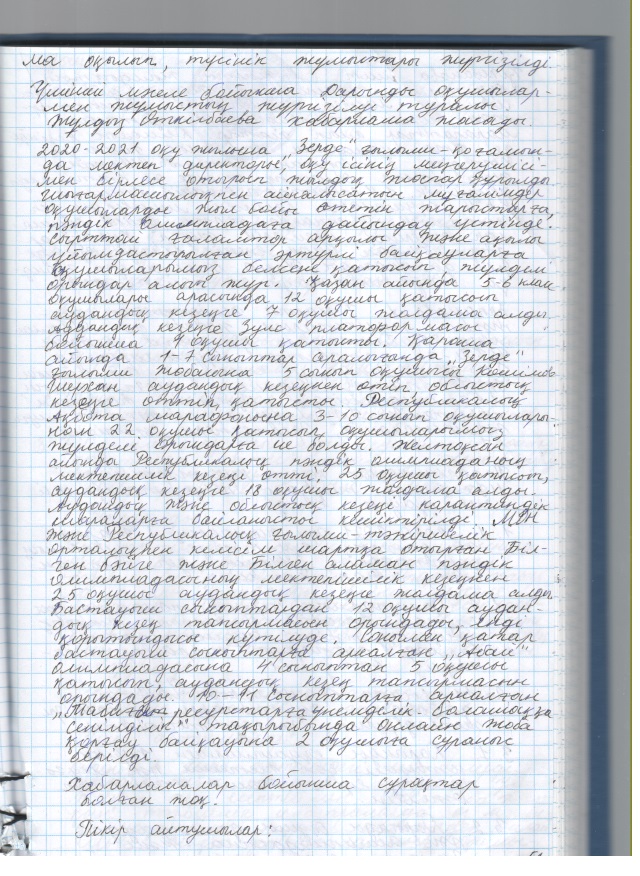 ма оқылып, түсінік жұмыстары жүргізілді
Үшінші мәселе бойынша Дарынды оқушылар-
мен жұмыстың жүргізілуі туралы
Жұлдыз Өткілбаева хабарлама жасады.
2020-2021 оқу жылына „Зерде" ғылыми-қоғамын-
да мектеп директоры, оқу ісінің меңгерушісі-
мен бірлесе отырып жылдық жоспар құрылды
шығармашылықпен айналысатын мұғалімдер
оқушыларды жыл бойы өтетін жарыстарға,
пәндік олимпиадаға дайындау үстінде.
Сырттай ғаламтор арқылы және ақылы
ұйымдастырылған әртүрлі байқауларға
оқушыларымыз белсене қатысып, жүлделі
орындар алып жүр. Қазан айында 5-6 клас
оқушылары арасында 12 оқушы қатысып
аудандық кезеңге 7 оқушы жолдама алды.
Аудандық кезеңге Зум платформасы
бойынша 4 оқушы қатысты. Қараша
айында 1-7 сыныптар аралығында „Зерде"
ғылыми жобасына 5 сынып оқушысы
Шерхан аудандық кезеңнен өтіп облыстық
кезеңге өтті қатысты. Республикалық
Ақбота марафонына 3-10 сынып оқушылары-
нан 22 оқушы қатысып, оқушыларымыз
жүлделі орындарға ие болды. Желтоқсан
айында Республикалық пәндік олимпиаданың
мектепішілік кезеңі өтті. 25 оқушы қатысып,
аудандық кезеңге 18 оқушы жолдама алды.
Аудандық және облыстық кезеңі карантиндік
шараларға байланысты кешіктірілді.
және Республикалық ғылыми-тәжірибелік
орталықпен келісім шартқа отырған Біл-
ген бәйге және Білген аламан пәндік
олимпиадасының мектепішілік кезеңнен
25 оқушы аудандық кезеңге жолдама алды
Бастауыш сыныптардан 12 оқушы аудан-
дық кезең тапсырмасын орындады, енді
қорытындысы күтілуде. Сонымен қатар
бастауыш сыныптарға арналған „Абай"
олимпиадасына 4 сыныптан 5 оқушы
қатысып, аудандық кезең тапсырмасын
орындады. 10-11 сыныптарға арналған
„Табиғи ресурстарға үнемділік - болашаққа
сенімділік" тақырыбында онлайн жоба
қорғау байқауына 2 оқушыға сұраныс
берілді.
Хабарламалар бойынша сұрақтар
болған жоқ.
Пікір айтушылар: